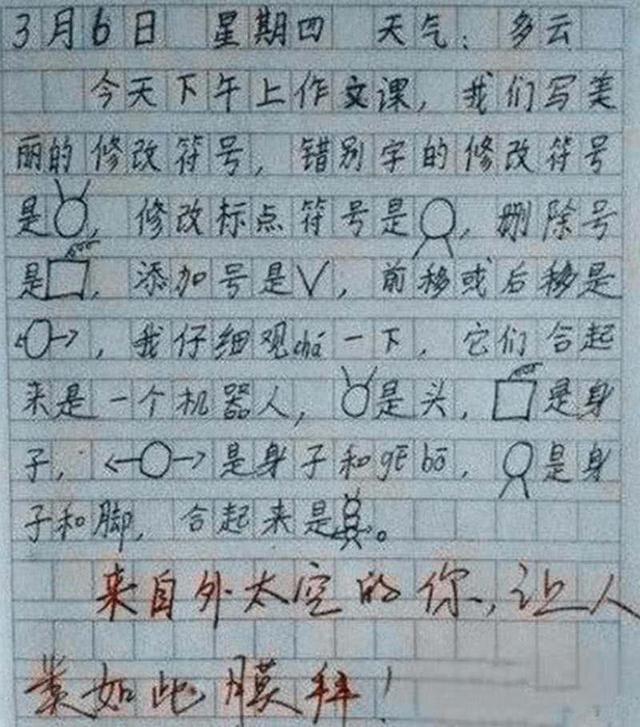 3月6日 星期四 天气：多云
今天下午上作文课，我们写美
丽的修改符号，错别字的修改符号
是，修改标点符号是，删除号
是，添加号是∨，前移或后移是
，我仔细观chá一下，它们合起
来是一个机器人，是头，是身
子，是身子和gē bō，是身
子和脚，合起来是。
来自外太空的你，让人
如此膜拜！